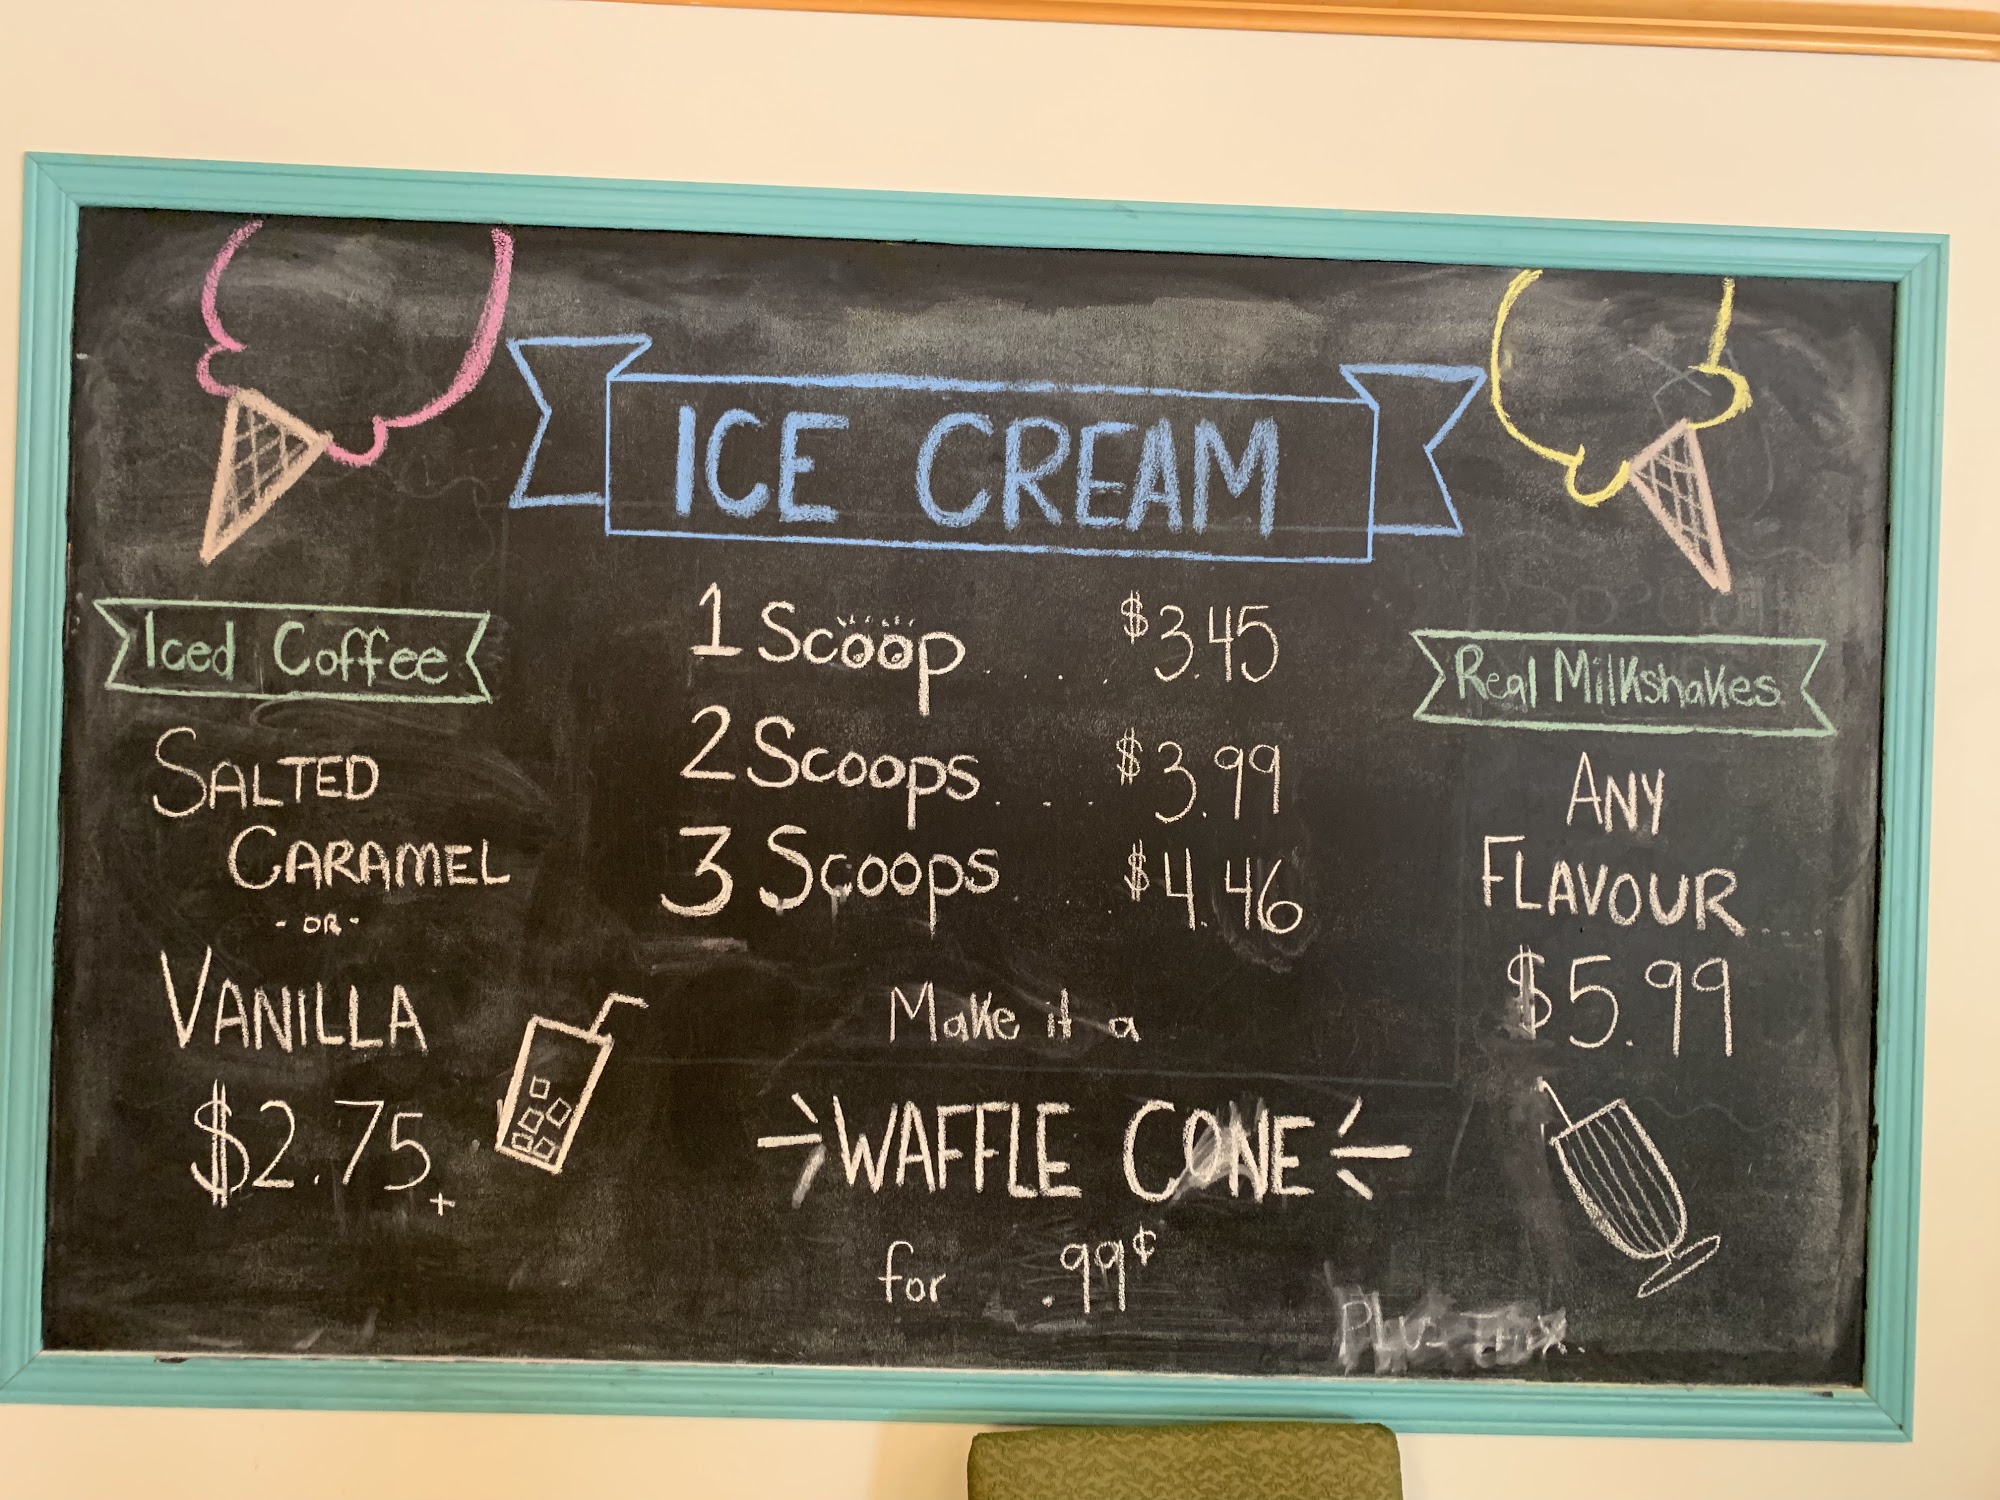 ICE CREAM
1 Scoop.... $3.45
2 Scoops.... $3.99
3 Scoops $4.46
Make it a
WAFFLE CONE
for .99¢
Iced Coffee
SALTED
CARAMEL
- OR -
VANILLA
$2.75+
Real Milkshakes
ANY
FLAVOUR....
$5.99
Plus Tax.